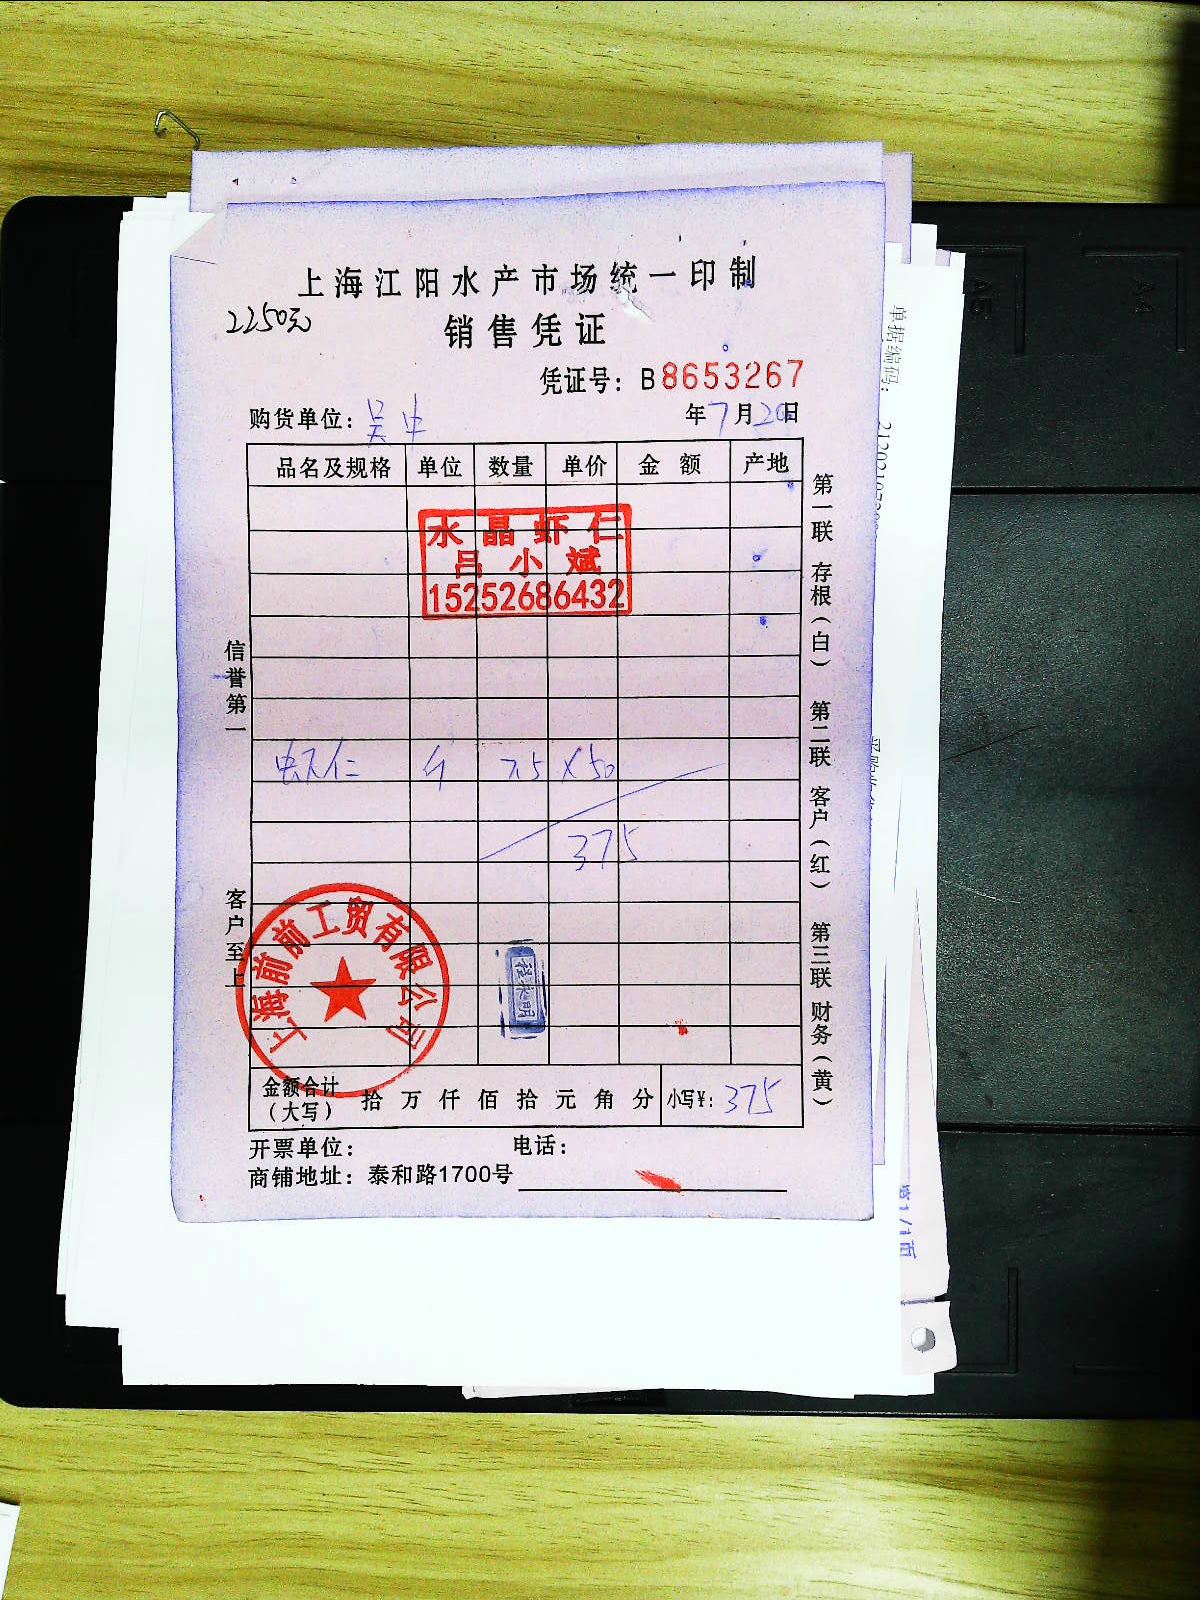 上海江阳水产市场统一印制
2250元
销售凭证
凭证号：B8653267
购货单位：吴中 年7月20日
品名及规格 单位 数量 单价 金额 产地
水晶虾仁
吕小斌
15252686432
虾仁 斤 7.5×50
375
信誉第一
客户至上
上海前前工贸有限公司
第一联 存根（白） 第二联 客户（红） 第三联 财务（黄）
金额合计（大写） 拾万仟佰拾元角分 小写¥：375
开票单位： 电话：
商铺地址：泰和路1700号
单据编码：
第1/1页
A5
A4